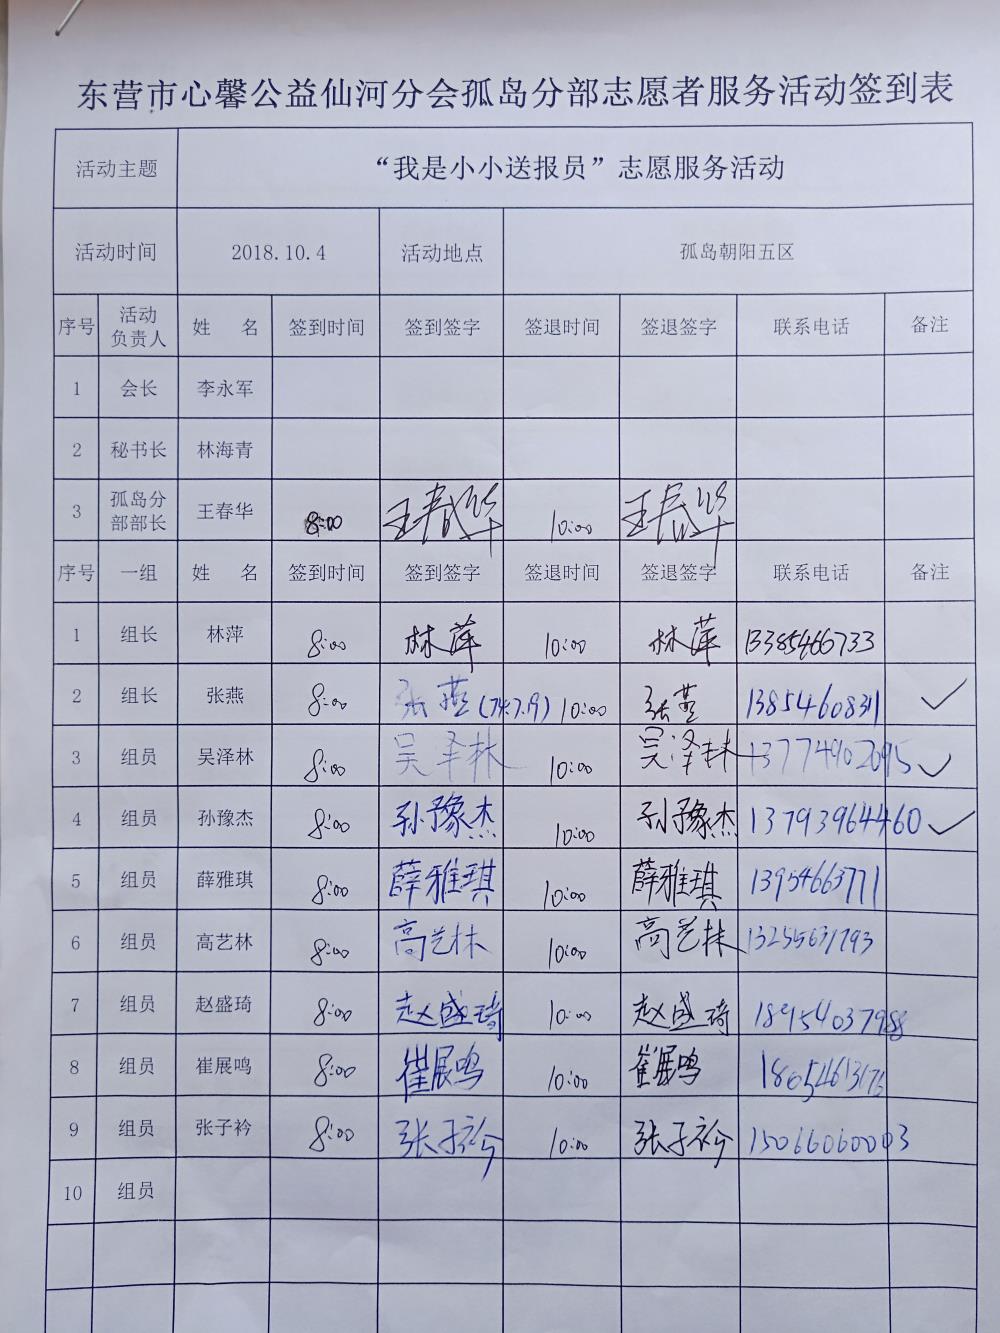 东营市心馨公益仙河分会孤岛分部志愿者服务活动签到表
活动主题 “我是小小送报员”志愿服务活动
活动时间 2018.10.4 活动地点 孤岛朝阳五区
序号 活动负责人 姓 名 签到时间 签到签字 签退时间 签退签字 联系电话 备注
1 会长 李永军
2 秘书长 林海青
3 孤岛分部部长 王春华 8:00 王春华 10:00 王春华
序号 一组 姓 名 签到时间 签到签字 签退时间 签退签字 联系电话 备注
1 组长 林萍 8:00 林萍 10:00 林萍 13385466733
2 组长 张燕 8:00 张燕 10:00 张燕 13854608311 ✓
3 组员 吴泽林 8:00 吴泽林 10:00 吴泽林 13774902095 ✓
4 组员 孙豫杰 8:00 孙豫杰 10:00 孙豫杰 13793964460 ✓
5 组员 薛雅琪 8:00 薛雅琪 10:00 薛雅琪 13954663771
6 组员 高艺林 8:00 高艺林 10:00 高艺林 13255631793
7 组员 赵盛琦 8:00 赵盛琦 10:00 赵盛琦 18954037988
8 组员 崔展鸣 8:00 崔展鸣 10:00 崔展鸣
9 组员 张子衿 8:00 张子衿 10:00 张子衿 15066060003
10 组员